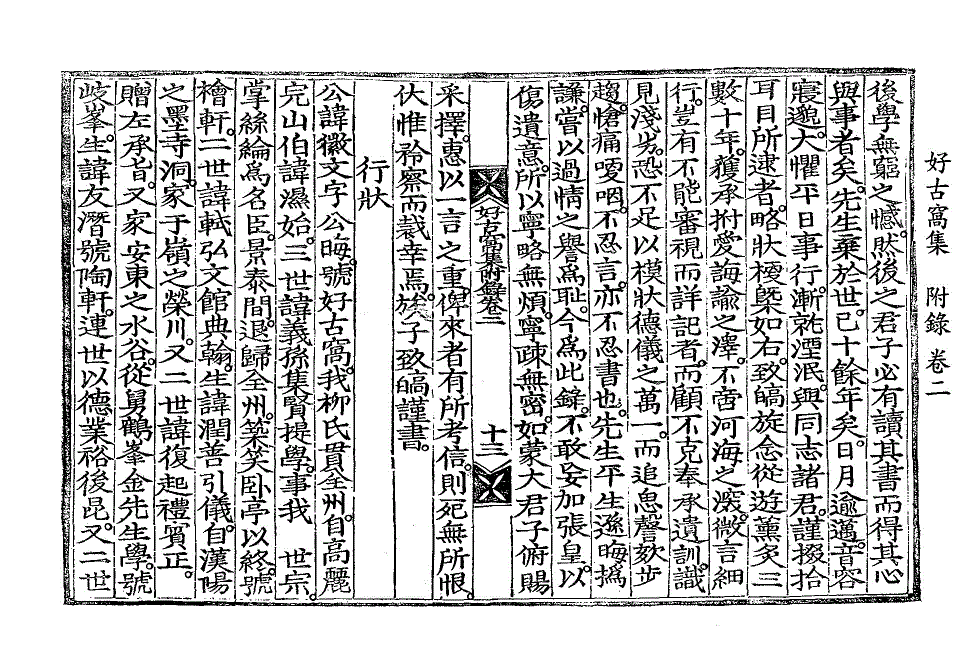 好古窩集　附錄　卷二
後學無窮之憾。然後之君子必有讀其書而得其心
與事者矣。先生棄於世。已十餘年矣。日月逾邁。音容
寢邈。大懼平日事行。漸就湮泯。與同志諸君。謹掇拾
耳目所逮者。略狀梗槩如右。致皜旋念從遊薰炙三
數十年。獲承拊愛誨諭之澤。不啻河海之瀸。微言細
行。豈有不能審視而詳記者。而顧不克奉承遺訓。識
見淺劣。恐不足以模狀德儀之萬一。而追惟謦欬步
趨。愴痛噯咽。不忍言。亦不忍書也。先生平生遜晦撝
謙。嘗以過情之譽爲耻。今爲此錄。不敢妄加張皇。以
傷遺意。所以寧略無煩。寧疎無密。如蒙大君子俯賜
好古窩集附錄卷二　十三
采擇。惠以一言之重。俾來者有所考信。則死無所恨。
伏惟矜察而裁幸焉。族子致皜謹書。
行狀
公諱徽文字公晦。號好古窩。我柳氏貫全州。自高麗
完山伯諱濕始。三世諱義孫集賢提學。事我　世宗。
掌絲綸爲名臣。景泰間。退歸全州。築笑卧亭以終。號
檜軒。二世諱軾弘文館典翰。生諱潤善引儀。自漢陽
之墨寺洞。家于嶺之榮川。又二世諱復起禮賓正。
贈左承旨。又家安東之水谷。從舅鶴峯金先生學。號
岐峯。生諱友潛號陶軒。連世以德業裕後昆。又二世